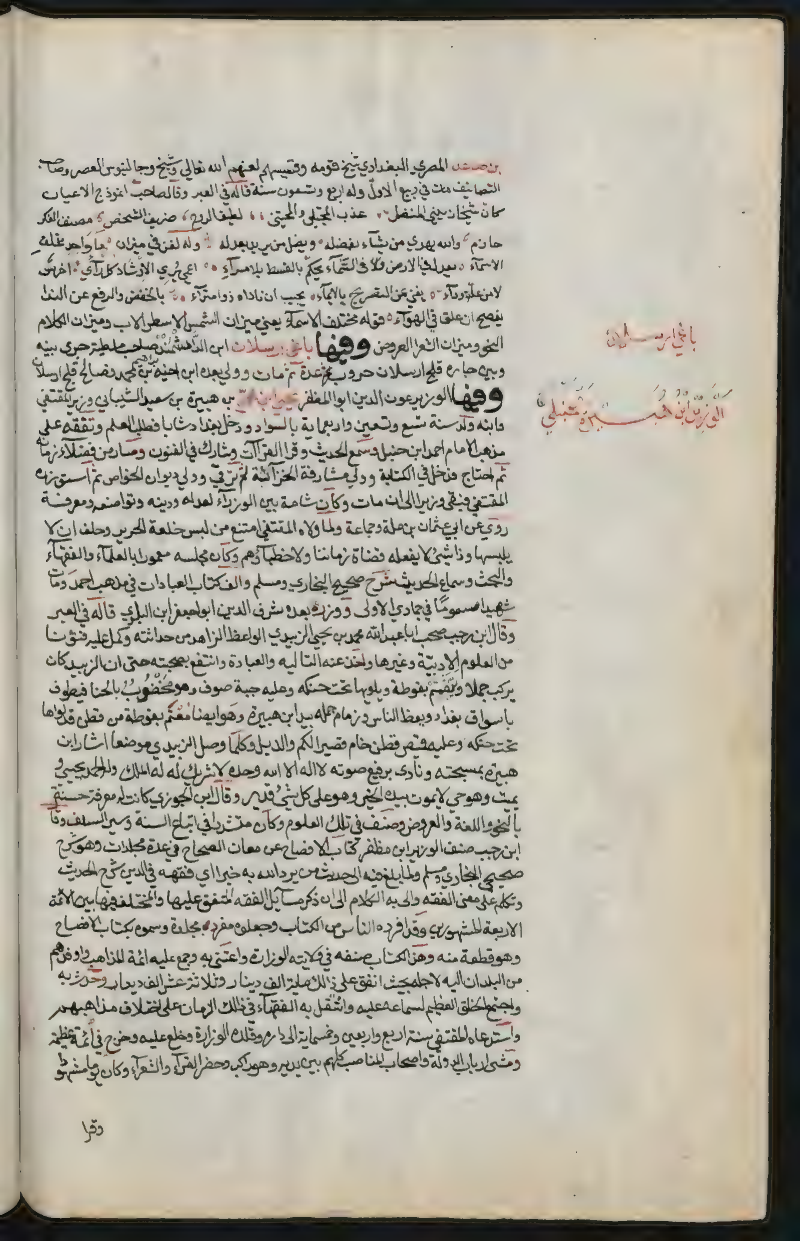 بن صاعد المصري البغدادي شيخ قومه وقسيسهم لعنهم الله تعالى وشيخ وجالينوس العصر وصاحب
التصانيف مات في ربيع الاول وله اربع وتسعون سنة قاله في العبر وقال صاحب انموذج الاعيان
كان شيخا بهي المنظر عذب المجتلي والمجتني لطيف الروح ظريف الشخص مصيب الفكر
حازم والله يهدي من يشاء بفضله ويضل من يريد بعدله وله لغز في ميزان ما واحد مختلف
الاسماء يعدل في الارض وفي السماء يحكم بالقسط بلا مراء اعمي يري الارشاد كل رائي اخرس
لا من علة وداء يغني عن التصريح بالايماء يجيب ان ناداه ذو امتراء بالخفض والرفع عن الندا
يفصح ان علق في الهواء قوله مختلف الاسماء يعني ميزان الشمس الاسطرلاب وميزان الكلام
النحو وميزان الشعر العروض وفيها ياغي ارسلان ابن الداهشمند صاحب ملطية جري بينه
وبين جاره قلج ارسلان حروب عدة ثم مات وولي بعده ابن اخيه ابراهيم بن محمد فصالح قلج ارسلان
وفيها الوزير عون الدين ابو المظفر يحيى ابن محمد بن هبيرة بن سعيد الشيباني وزير المقتفي
وابنه ولد سنة تسع وتسعين واربعماية بالسواد ودخل بغداد شابا فطلب العلم وتفقه على
مذهب الامام احمد ابن حنبل وسمع الحديث وقرا القراآت وشارك في الفنون وصار من فضلاء زمانه
ثم احتاج فدخل في الكتابة وولي مشارفة الخزانة ثم ترقي وولي ديوان الخواص ثم استوزره
المقتفي فبقي وزيرا الى ان مات وكان شامة بين الوزراء لعدله ودينه وتواضعه ومعرفته
روي عن ابي عثمان بن ملة وجماعة ولما ولاه المقتفي امتنع من لبس خلعة الحرير وحلف ان لا
يلبسها وذا شي لا يفعله قضاة زماننا ولا خطباؤهم وكان مجلسه معمورا بالعلماء والفقهاء
والبحث وسماع الحديث شرح صحيح البخاري ومسلم والف كتاب العبادات في مذهب احمد ومات
شهيدا مسموما في جمادي الاولى ووزر بعده شرف الدين ابو جعفر ابن البلدي قاله في العبر
وقال ابن رجب صحب ابا عبد الله محمد بن يحيى الزبيدي الواعظ الزاهد من حداثته وكمل عليه فنونا
من العلوم الادبية وغيرها واخذ عنه التاله والعبادة وانتفع بصحبته حتى ان الزبيدي كان
يركب جملا ويعتم بفوطة ويلويها تحت حنكه وعليه جبة صوف وهو مخضوب بالحنا فيطوف
باسواق بغداد ويعظ الناس وزمام جمله بيد ابن هبيرة وهو ايضا معتم بفوطة من قطن قد لواها
تحت حنكه وعليه قميص قطن خام قصير الكم والذيل وكلما وصل الزبيدي موضعا اشار ابن
هبيرة بمسبحته ونادى برفيع صوته لا اله الا الله وحده لا شريك له له الملك وله الحمد يحيي و
يميت وهو حي لا يموت بيده الخير وهو على كل شي قدير وقال ابن الجوزي كانت له معرفة حسنة
بالنحو واللغة والعروض وصنف في تلك العلوم وكان متشددا في اتباع السنة وسير السلف وقال
ابن رجب صنف الوزير ابن مظفر كتاب الافصاح عن معان الصحاح في عدة مجلدات وهو شرح
صحيحي البخاري ومسلم ولما بلغ فيه الى حديث من يرد الله به خيرا اي فقهه في الدين شرح الحديث
وتكلم على معنى الفقه وال به الكلام الى ان ذكر مسايل الفقه المتفق عليها والمختلف فيها بين الائمة
الاربعة المشهورين وقد افرده الناس من الكتاب وجعلوه مفرده مجلدة وسموه بكتاب الافصاح
وهو قطعة منه وهذا الكتاب صنفه في ولايته الوزارة واعتنى به وجمع عليه ائمة المذاهب واوفدهم
من البلدان اليه لاجله بحيث انفق على ذلك ماية الف دينار وثلاثة عشر الف دينار وحدث به
واجتمع الخلق العظيم لسماعه عليه واشتغل به الفقهاء في ذلك الزمان على اختلاف مذاهبهم
واستدعاه المقتفي سنة اربع واربعين وخمسماية الى داره وقلده الوزارة وخلع عليه وخرج في ابهة عظيمة
ومشى ارباب الدولة واصحاب المناصب كلهم بين يديه وهو راكب وحضر القراء والشعراء وكان يوما مشهودا
وقرا
ياغي ارسلان
الوزير ابن هبيرة حنبلي